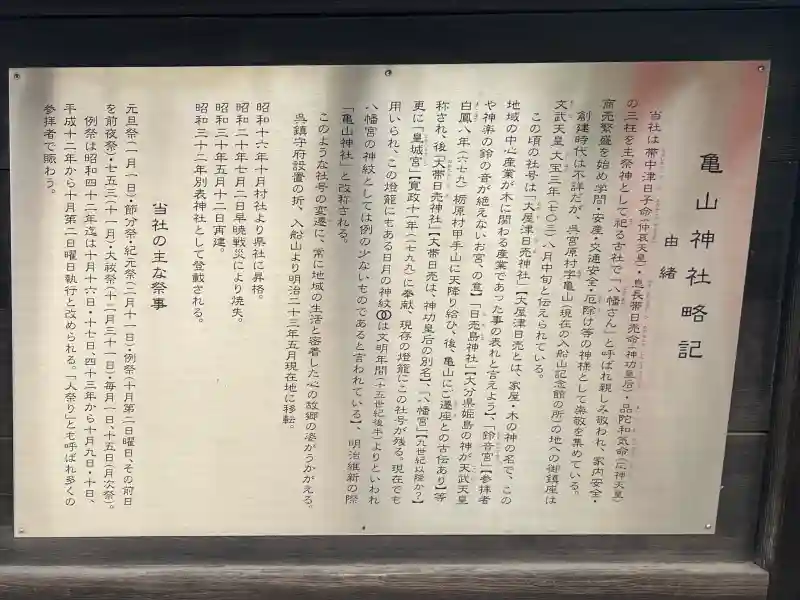 亀山神社略記
由緒
当社は帯中津日子命(仲哀天皇)・息長帯日売命(神功皇后)・品陀和気命(応神天皇)
の三柱を主祭神として祀る古社で「八幡さん」と呼ばれ親しみ敬われ、家内安全・
商売繁盛を始め学問・安産・交通安全・厄除け等の神様として崇敬を集めている。
創建時代は不詳だが、呉宮原村字亀山(現在の入船山記念館の所)の地への御鎮座は
文武天皇大宝三年(七〇三)八月中旬と伝えられている。
この頃の社号は「大屋津日売神社」【大屋津日売とは、家屋・木の神の名で、この
地域の中心産業が木に関わる産業であった事の表れと言えよう】、「鈴音宮」【参拝者
や神楽の鈴の音が絶えないお宮、の意】「日売島神社」【大分県姫島の神が天武天皇
白鳳八年(六七九)栃原村甲手山に天降り給ひ、後、亀山にご遷座との古伝あり】等
称され、後「大帯日売神社」【大帯日売は、神功皇后の別名】、「八幡宮」【九世紀以降か?】
更に「皇城宮」【寛政十一年(一七九九)に奉献、現存の燈籠にこの社号が残る。現在でも
用いられ、この燈籠にもある日月の神紋は文明年間(十五世紀後半)よりといわれ
八幡宮の神紋としては例の少ないものであると言われている】、明治維新の際
「亀山神社」と改称される。
このような社号の変遷に、常に地域の生活と密着した心の故郷の姿がうかがえる。
呉鎮守府設置の折、入船山より明治二十三年五月現在地に移転。
昭和十六年十月村社より県社に昇格。
昭和二十年七月二日早暁戦災により焼失。
昭和三十年五月十二日再建。
昭和三十二年別表神社として登載される。
当社の主な祭事
元旦祭(一月一日)・節分祭・紀元祭(二月十一日)・例祭(十月第二日曜日、その前日
を前夜祭・七五三(十一月)・大祓祭(十二月三十一日)・毎月一日、十五日(月次祭)。
例祭は昭和四十二年迄は十月十六日・十七日、四十三年から十月九日・十日、
平成十二年から十月第二日曜日執行と改められる。「人祭り」とも呼ばれ多くの
参拝者で賑わう。